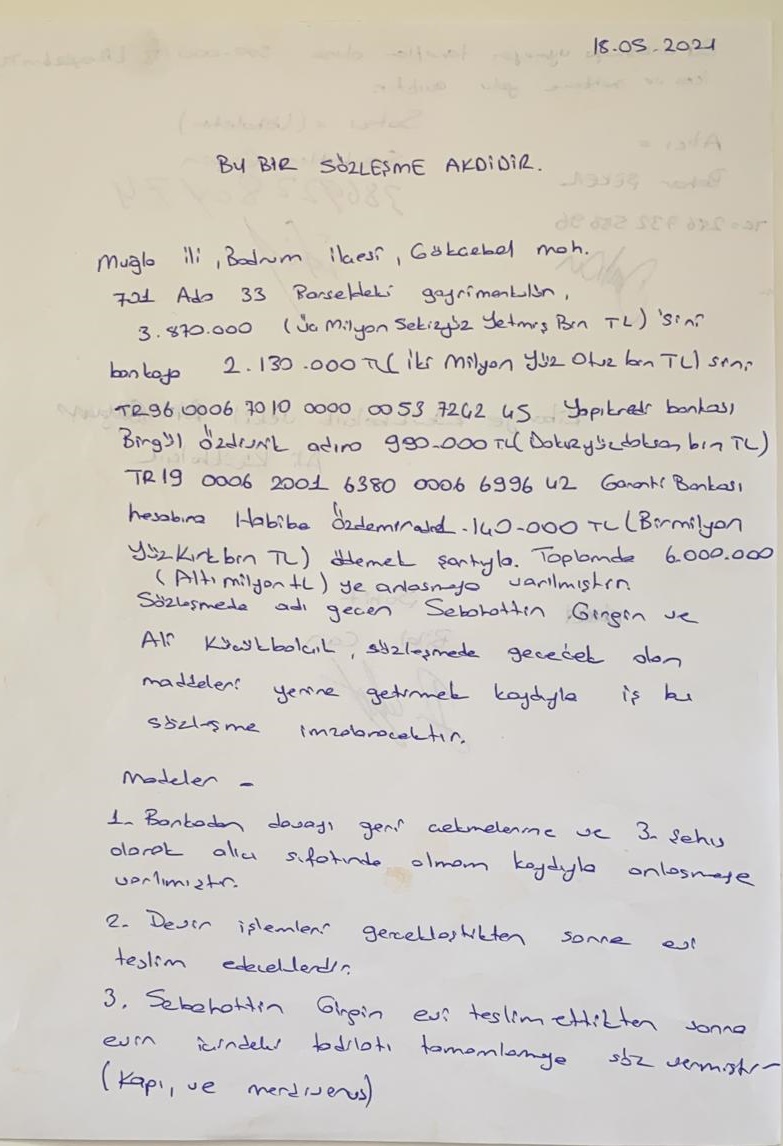 18.05.2021
BU BİR SÖZLEŞME AKDİDİR.
Muğla ili, Bodrum ilçesi, Gökcebel mah.
721 Ada 33 Parseldeki gayrimenkulün,
3.870.000 (Üç Milyon Sekizyüz Yetmiş Bin TL) 'sini
bankaya 2.130.000 TL (İki Milyon Yüz Otuz bin TL) sini
TR96 0006 7010 0000 0053 7242 45 Yapıkredi bankası
Birgül adına 990.000 TL (Dokuzyüzdoksan bin TL)
TR19 0006 2001 6380 0006 6996 42 Garanti Bankası
hesabına Habibe 140.000 TL (Birmilyon
Yüz Kırk bin TL) ödemek şartıyla. Toplamda 6.000.000
(Altı milyon tL) ye anlaşmaya varılmıştır.
Sözleşmede adı geçen Sebahattin Girgin ve
Ali Küçükbalcık, sözleşmede geçecek olan
maddeleri yerine getirmek kaydıyla iş bu
sözleşme imzalanacaktır.
Madeler -
1- Bankadan davayı geri çekmelerine ve 3. şahıs
olarak alıcı sıfatında olmam kaydıyla anlaşmaya
varılmıştır.
2- Devir işlemleri gerçekleştikten sonra evi
teslim edeceklerdir.
3. Sebahattin Girgin evi teslim ettikten sonra
evin içindeki tadilatı tamamlamaya söz vermiştir-
(Kapı, ve